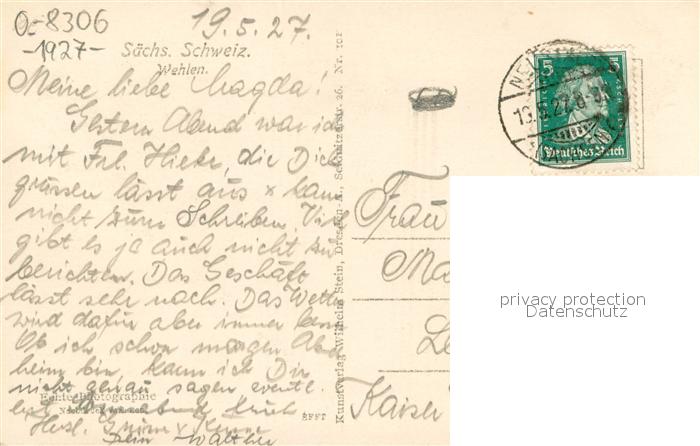 O-8306
-1927-
19.5.27.
Sächs. Schweiz.
Wehlen.
Meine liebe Magda!
Gestern Abend war ich
mit Frl. Hieke, die Dich
grüssen lässt aus & kam
nicht zum Schreiben. Viel
gibt es ja auch nicht zu
berichten. Das Geschäft
lässt sehr nach. Das Wetter
wird dafür aber immer
Ob ich schon morgen Abend
heim bin, kann ich Dir
nicht genau sagen, eventl.
erst
Herzl. Grüsse & Küsse
Dein Walther
Echte Photographie
8FFT
Kunstverlag Wilhelm Stein, Dresden-A., Schnitzerstr. 26. Nr. 101
5 5
Deutsches Reich
Frau
Ma
Le
Kaiser
privacy protection
Datenschutz